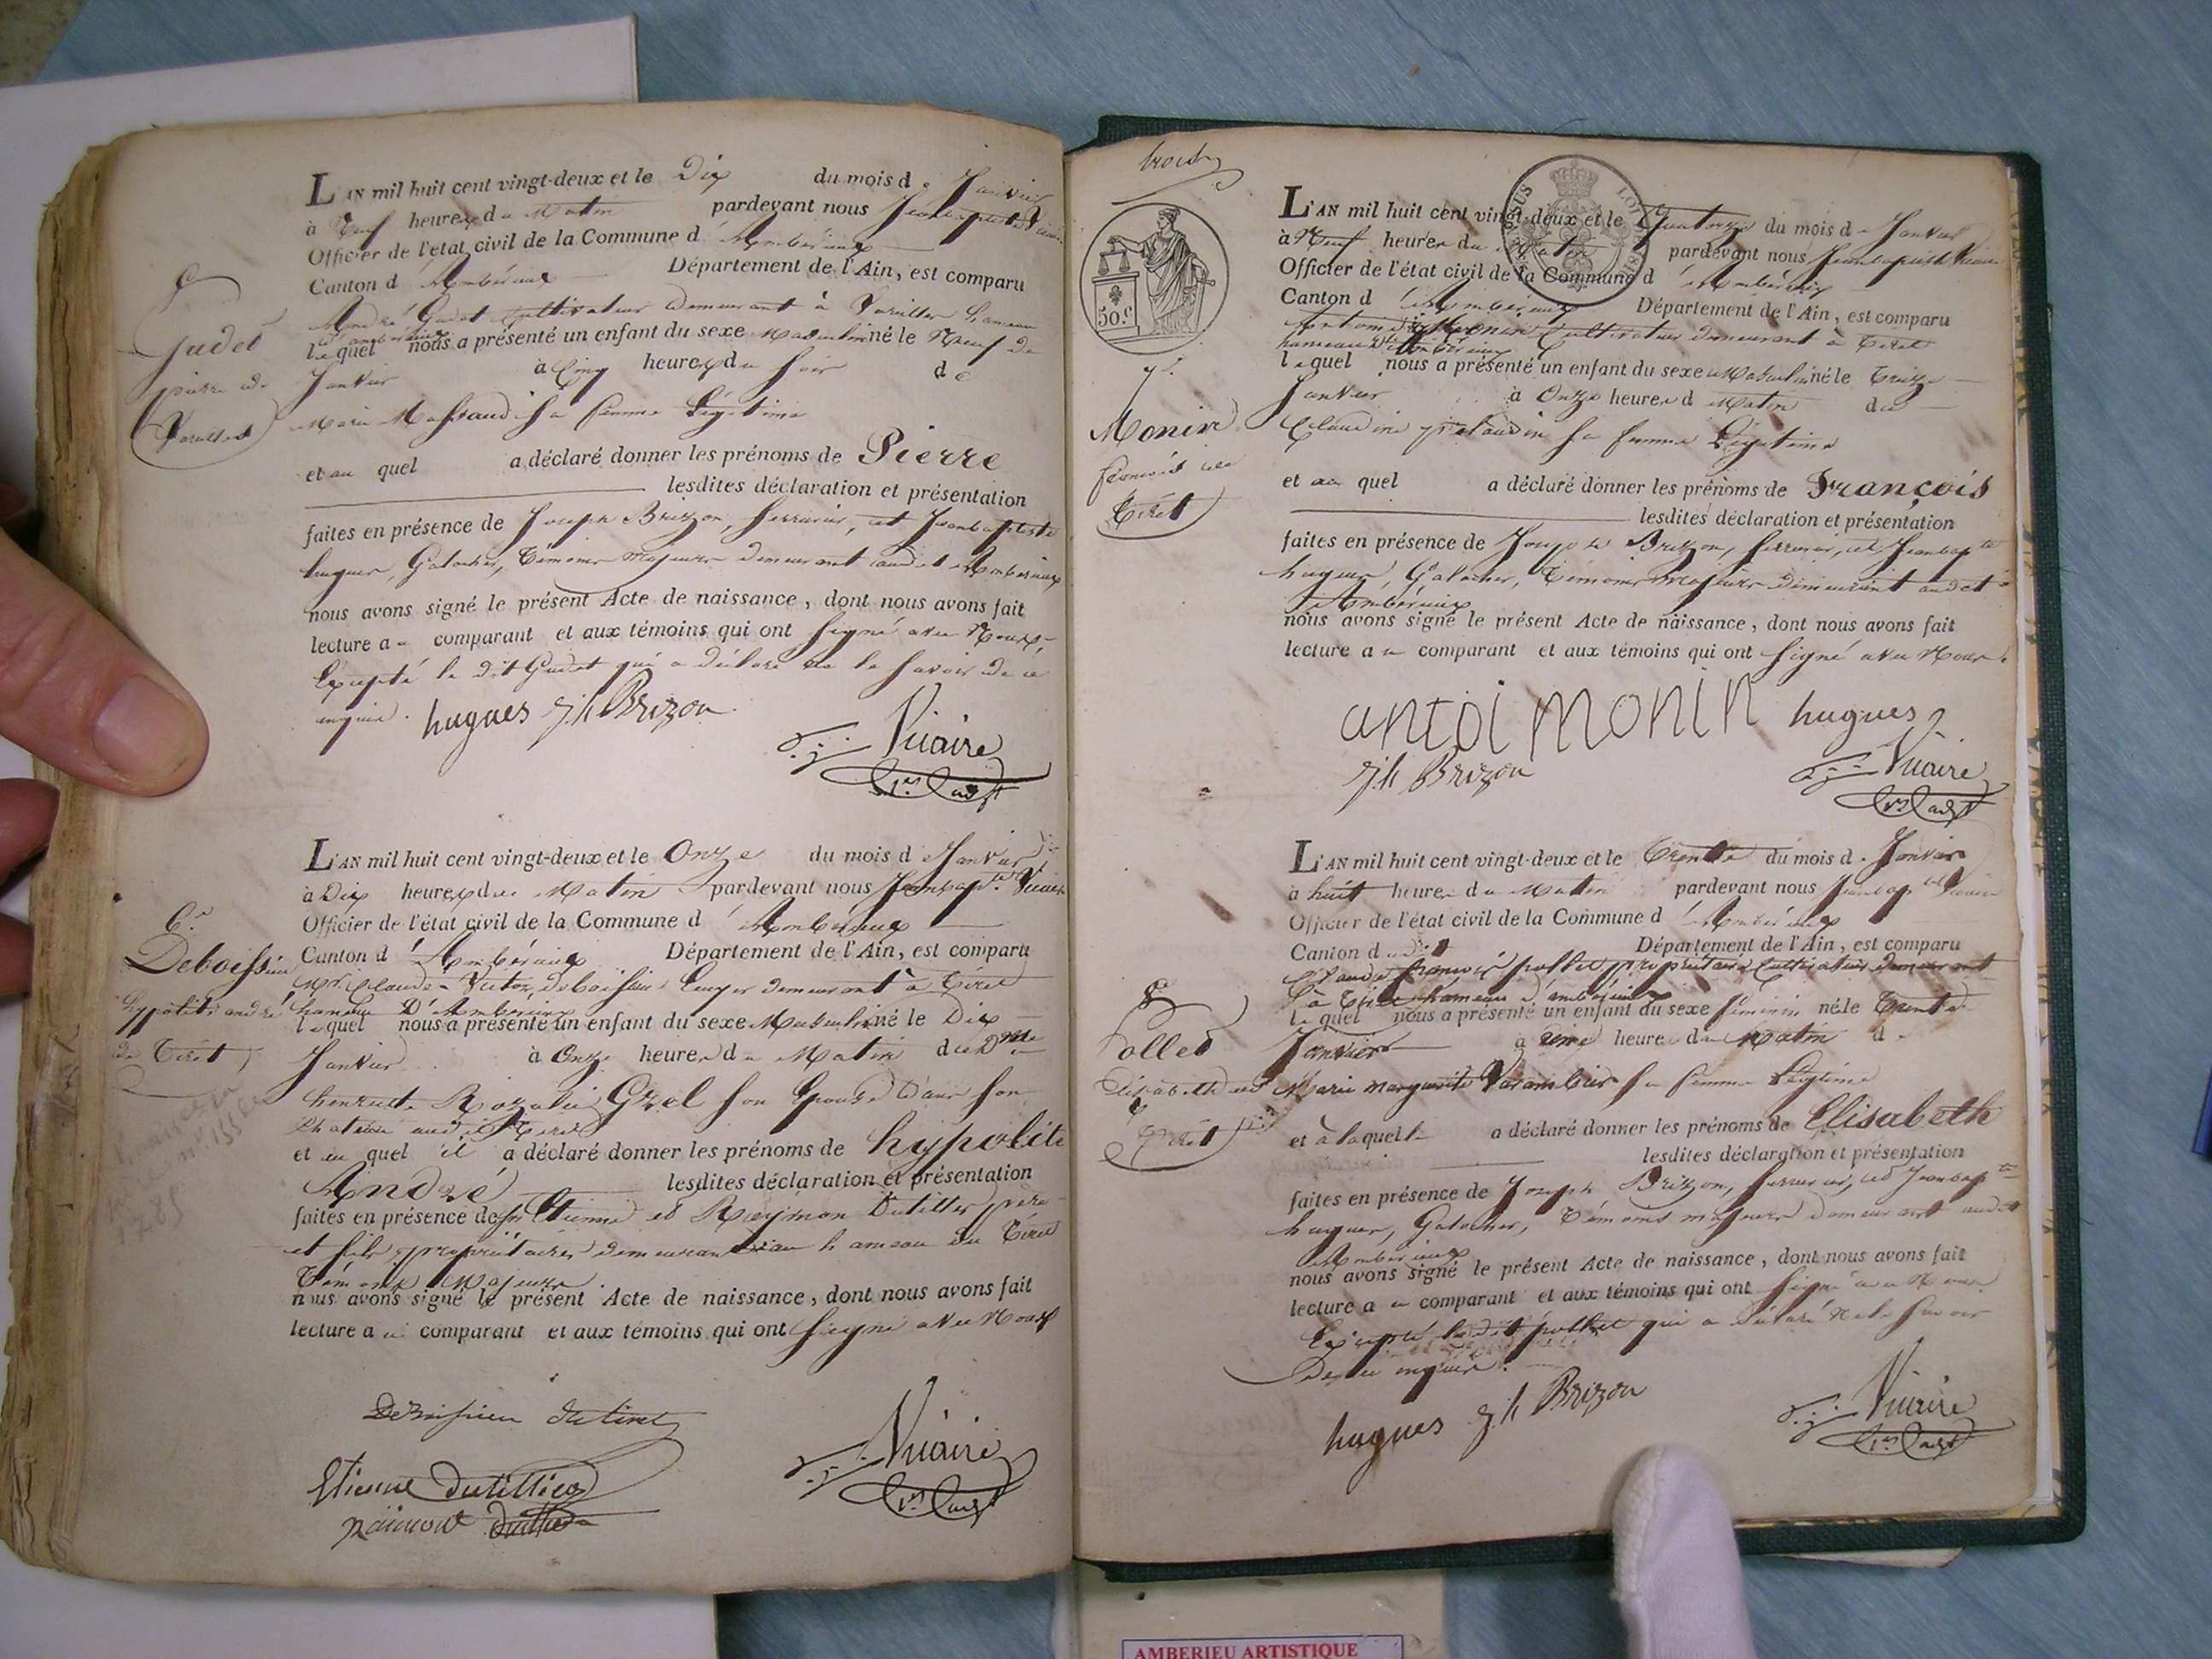 L'AN mil huit cent vingt-deux et le Dix du mois de Janvier
à Neuf heures du Matin pardevant nous Jean baptiste Vicaire
Officier de l'état civil de la Commune d'Ambérieux
Canton d'Ambérieux Département de l'Ain, est comparu
André Gudet Cultivateur demeurant à Vareilles hameau
d'ambérieux
lequel nous a présenté un enfant du sexe Masculin né le Neuf de
Janvier à Cinq heures du soir de
Marie Massaud sa femme Légitime
et au quel a déclaré donner les prénoms de Pierre
lesdites déclaration et présentation
faites en présence de Joseph Brizon, serrurier, et Jeanbaptiste
hugues, Galocher, Témoins Majeurs demeurant audit Ambérieux
nous avons signé le présent Acte de naissance, dont nous avons fait
lecture au comparant et aux témoins qui ont signé avec Nous,
Excepté le dit Gudet qui a déclaré ne le savoir de ce
enquis.
hugues J.h Brizon
Vicaire
Gudet
pierre de
Vareilles
L'AN mil huit cent vingt-deux et le Onze du mois de Janvier
à Dix heures du Matin pardevant nous Jeanbapte Vicaire
Officier de l'état civil de la Commune d'Ambérieux
Canton d'Ambérieux Département de l'Ain, est comparu
Mr. Claude-Victor deboissieu demeurant à Tiret
hameau D'Ambérieux
lequel nous a présenté un enfant du sexe Masculin né le Dix
Janvier à Onze heures du Matin de Dme
henriette Rozalie Grel son Epouse dans son
Chateau audit Tiret
et au quel il a déclaré donner les prénoms de hypolite
André lesdites déclaration et présentation
faites en présence de Etienne et Reymon Dutillier père
et fils, propriétaires demeurant au hameau de Tiret
Témoins Majeurs
nous avons signé le présent Acte de naissance, dont nous avons fait
lecture au comparant et aux témoins qui ont signé avec Nous
Deboissieu du tiret
Etienne dutillier
raimont dutillier
Vicaire
6.e
Deboissieu
hypolite andré
de Tiret
L'AN mil huit cent vingt-deux et le Quatorze du mois de Janvier
à Neuf heures du Matin pardevant nous Jeanbaptiste Vicaire
Officier de l'état civil de la Commune d'Ambérieux
Canton d'Ambérieux Département de l'Ain, est comparu
Antoine Monin Cultivateur demeurant à Tiret
hameau d'Ambérieux
lequel nous a présenté un enfant du sexe Masculin né le Treize
Janvier à Onze heures du Matin de
Claudine sa femme Légitime
et au quel a déclaré donner les prénoms de François
lesdites déclaration et présentation
faites en présence de Joseph Brizon, serrurier, et Jeanbapte
hugues, Galocher, Témoins Majeurs demeurant audit
Ambérieux
nous avons signé le présent Acte de naissance, dont nous avons fait
lecture au comparant et aux témoins qui ont signé avec Nous.
antoi monin hugues
J.h Brizon
Vicaire
50.c
7.e
Monin
françois de
Tiret
L'AN mil huit cent vingt-deux et le Trente du mois de Janvier
à huit heures du Matin pardevant nous Jeanbapte Vicaire
Officier de l'état civil de la Commune d'Ambérieux
Canton dudit Département de l'Ain, est comparu
Claude françois pollet propriétaire Cultivateur demeurant
à Tiret hameau d'ambérieux
lequel nous a présenté un enfant du sexe féminin né le Trente
Janvier à heure du Matin de
Marie Marguerite Varambier sa femme Légitime
et à laquelle a déclaré donner les prénoms de Elisabeth
lesdites déclaration et présentation
faites en présence de Joseph Brizon, serrurier, et Jeanbapte
hugues, Galocher, Témoins majeurs demeurant audit
Ambérieux
nous avons signé le présent Acte de naissance, dont nous avons fait
lecture au comparant et aux témoins qui ont signé avec Nous
Excepté le dit pollet qui a déclaré ne le savoir
De ce enquis.
hugues J.h Brizon
Vicaire
8
pollet
Elisabeth de
Tiret
AMBERIEU ARTISTIQUE